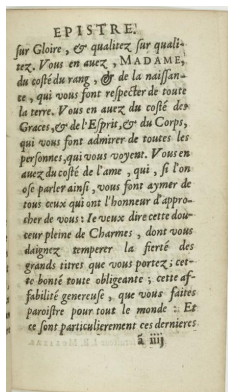 EPISTRE.
ſur Gloire, & qualitez ſur quali-
tez. Vous en auez, MADAME,
du coſté du rang, & de la naiſſan-
ce, qui vous font reſpecter de toute
la terre. Vous en auez du coſté des
Graces, & de l'Eſprit, & du Corps,
qui vous font admirer de toutes les
perſonnes, qui vous voyent. Vous en
auez du coſté de l'ame, qui, ſi l'on
oſe parler ainſi, vous font aymer de
tous ceux qui ont l'honneur d'appro-
cher de vous: Ie veux dire cette dou-
ceur pleine de Charmes, dont vous
daignez temperer la fierté des
grands titres que vous portez; cet-
te bonté toute obligeante; cette af-
fabilité genereuſe, que vous faites
paroiſtre pour tout le monde: Et
ce ſont particulierement ces dernieres
ã iiij